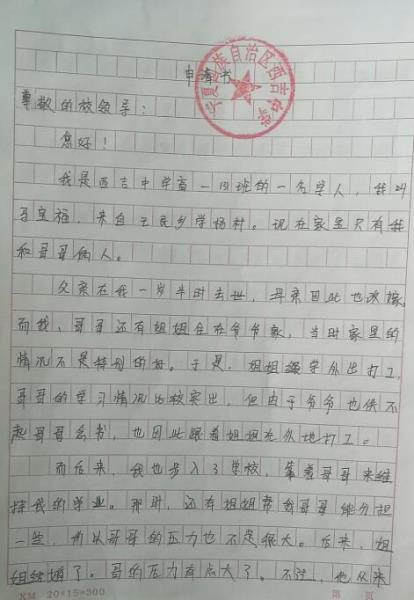 宁夏回族自治区西吉中学
申请书
尊敬的校领导：
您好！
我是西吉中学高一(3)班的一名学人，我叫
宝福，来自王民乡学杨村。现在家里只有我
和哥哥俩人。
父亲在我一岁半时去世，母亲因此也改嫁，
而我、哥哥还有姐姐住在爷爷家，当时家里的
情况不是特别的好。于是，姐姐缀学外出打工，
哥哥的学习情况比较突出，但由于爷爷也供不
起哥哥念书，也因此跟着姐姐在外地打工。
而后来，我也步入了学校，靠着哥哥来维
持我的学业。那时，还有姐姐帮我哥哥能分担
一些，所以哥哥的压力也不是很大。后来，姐
姐结婚了。哥的压力有点大了。不过，他从来
XM 20×15=300
第 页